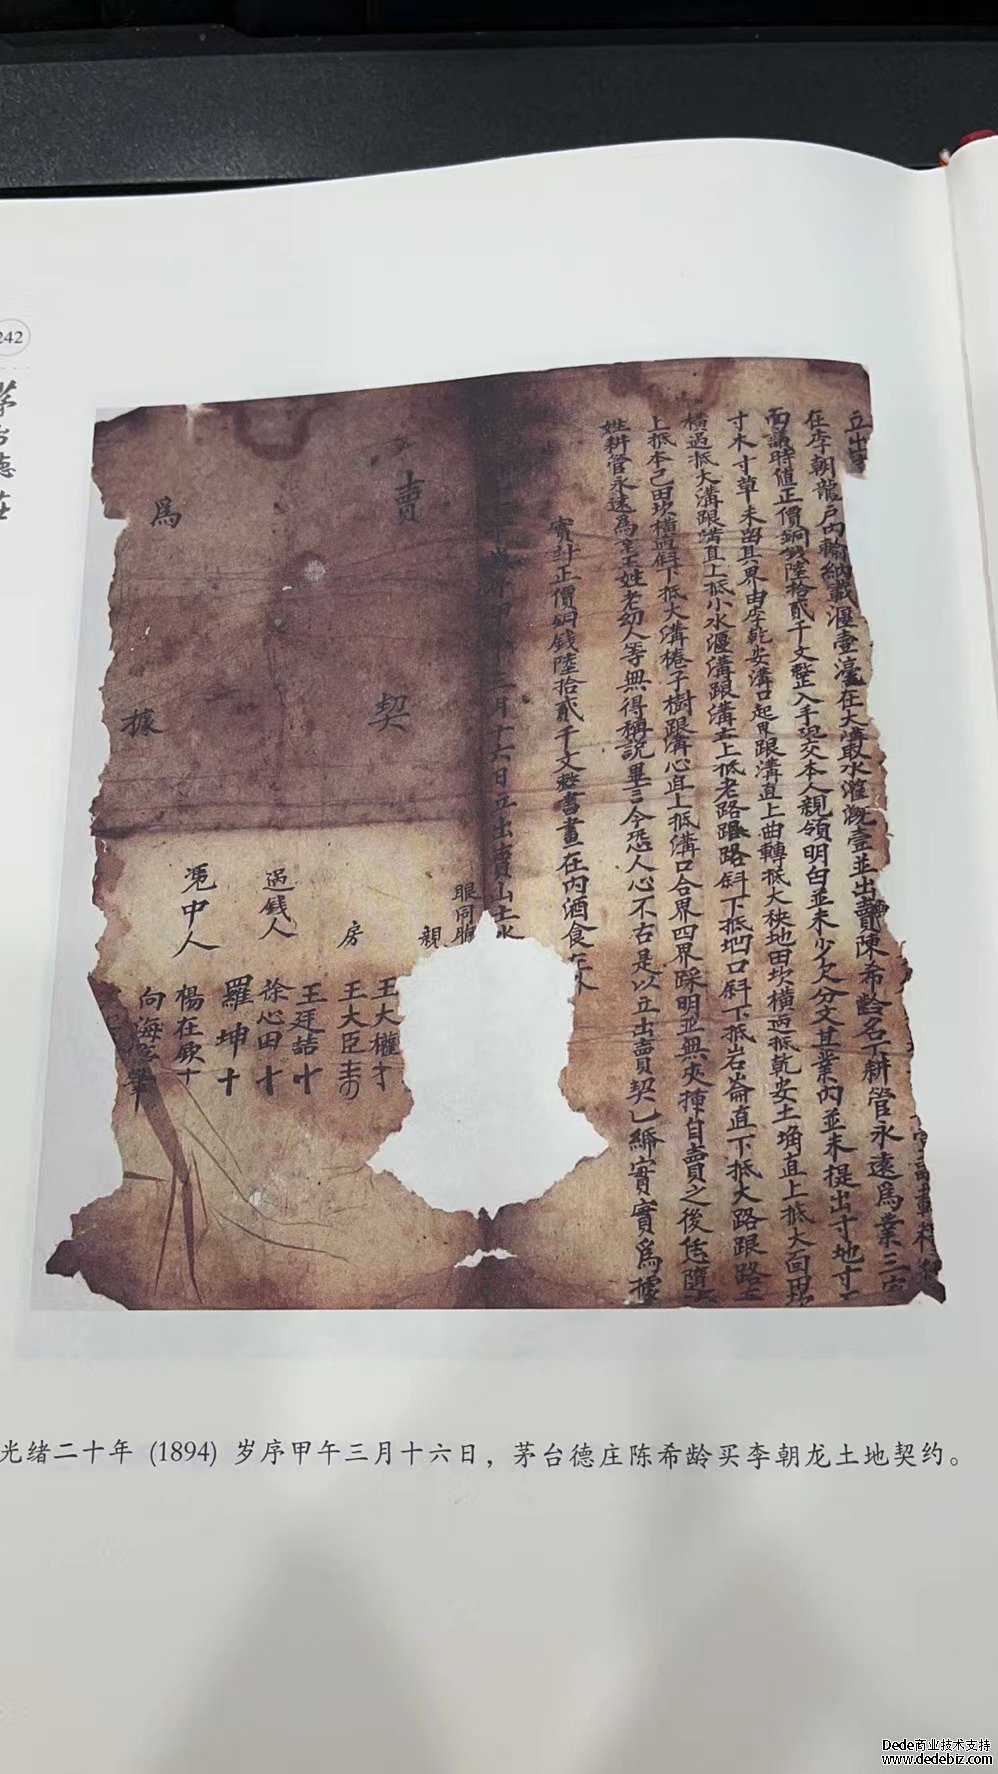 242
茅台德庄
立出賣
在李朝龍戶內輸納載堰壹毫在大溝取水灌溉壹並出賣陳希齡名下耕管永遠為業三家
面議時值正價銅錢陸拾貳千文整入手現交本人親領明白並未少欠分文其業內並未提出寸地寸土
寸木寸草未留其界由李乾安溝口起界跟溝直上曲轉抵大秧地田坎橫過抵乾安土埆直上抵大面
橫過抵大溝跟溝直上抵小水堰溝跟溝直上抵老路跟路斜下抵凹口斜下抵岩崙直下抵大路跟路
上抵本己田坎橫過斜下抵大溝棬子樹跟溝心直上抵溝口合界四界踩明並無夾揷自賣之後恁隨
姓耕管永遠為業王姓老幼人等無得稱說異言今恐人心不古是以立出賣契乙紙實實為據
實計正價銅錢陸拾貳千文整書畫在內酒食在
三月十六日立出賣山土
眼同
親
房
王大權
王大臣
王廷喆十
過錢人
徐心田十
羅坤十
憑中人
楊在欽十
向海
賣
契
為
據
光绪二十年 (1894) 岁序甲午三月十六日，茅台德庄陈希龄买李朝龙土地契约。
Dede商业技术支持
www.dedebiz.com